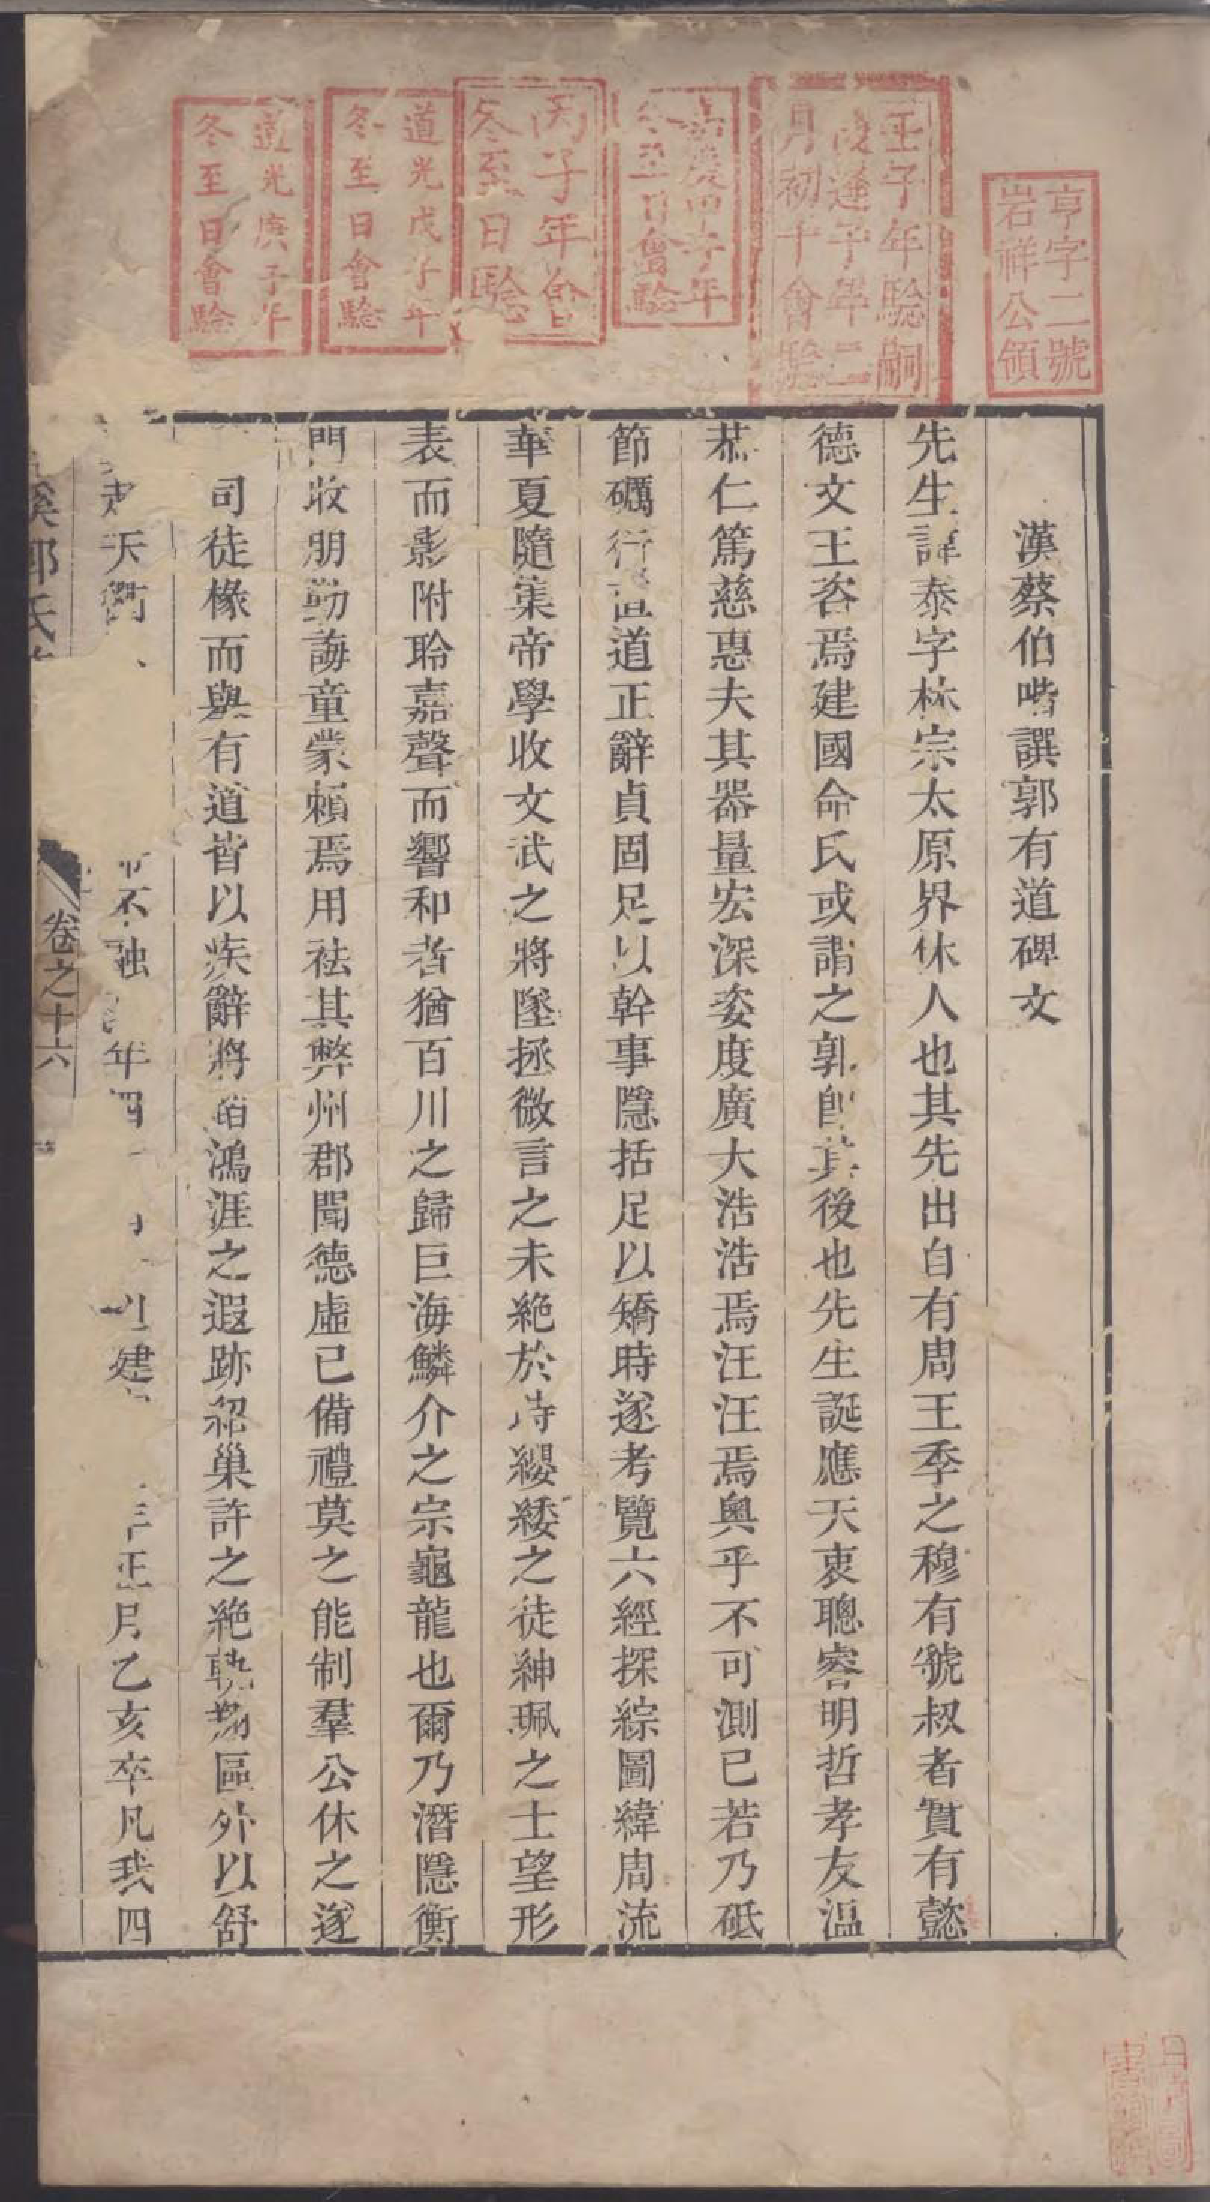 亨字二號
岩祥公領
壬子年驗嗣
後逢子年二
月初十會驗
嘉慶四子年
冬至日會驗
丙子年會
冬至日驗
道光戊子年
冬至日會驗
道光庚子年
冬至日會驗
漢蔡伯喈譔郭有道碑文
先生諱泰字林宗太原界休人也其先出自有周王季之穆有虢叔者實有懿
德文王咨焉建國命氏或謂之郭卽其後也先生誕應天衷聰睿明哲孝友溫
恭仁篤慈惠夫其器量宏深姿度廣大浩浩焉汪汪焉奥乎不可測已若乃砥
節礪行直道正辭貞固足以幹事隱括足以矯時遂考覽六經探綜圖緯周流
華夏隨集帝學收文武之將墜拯微言之未絶於時纓緌之徒紳珮之士望形
表而影附聆嘉聲而響和者猶百川之歸巨海鱗介之宗龜龍也爾乃潛隱衡
門收朋勤誨童蒙賴焉用祛其弊州郡聞德虛已備禮莫之能制羣公休之遂
司徒椽而與有道皆以疾辭將蹈鴻涯之遐跡紹巢許之絶軌翔區外以舒
天衢不融年四建年正月乙亥卒凡我四
溪郭氏
卷之十六